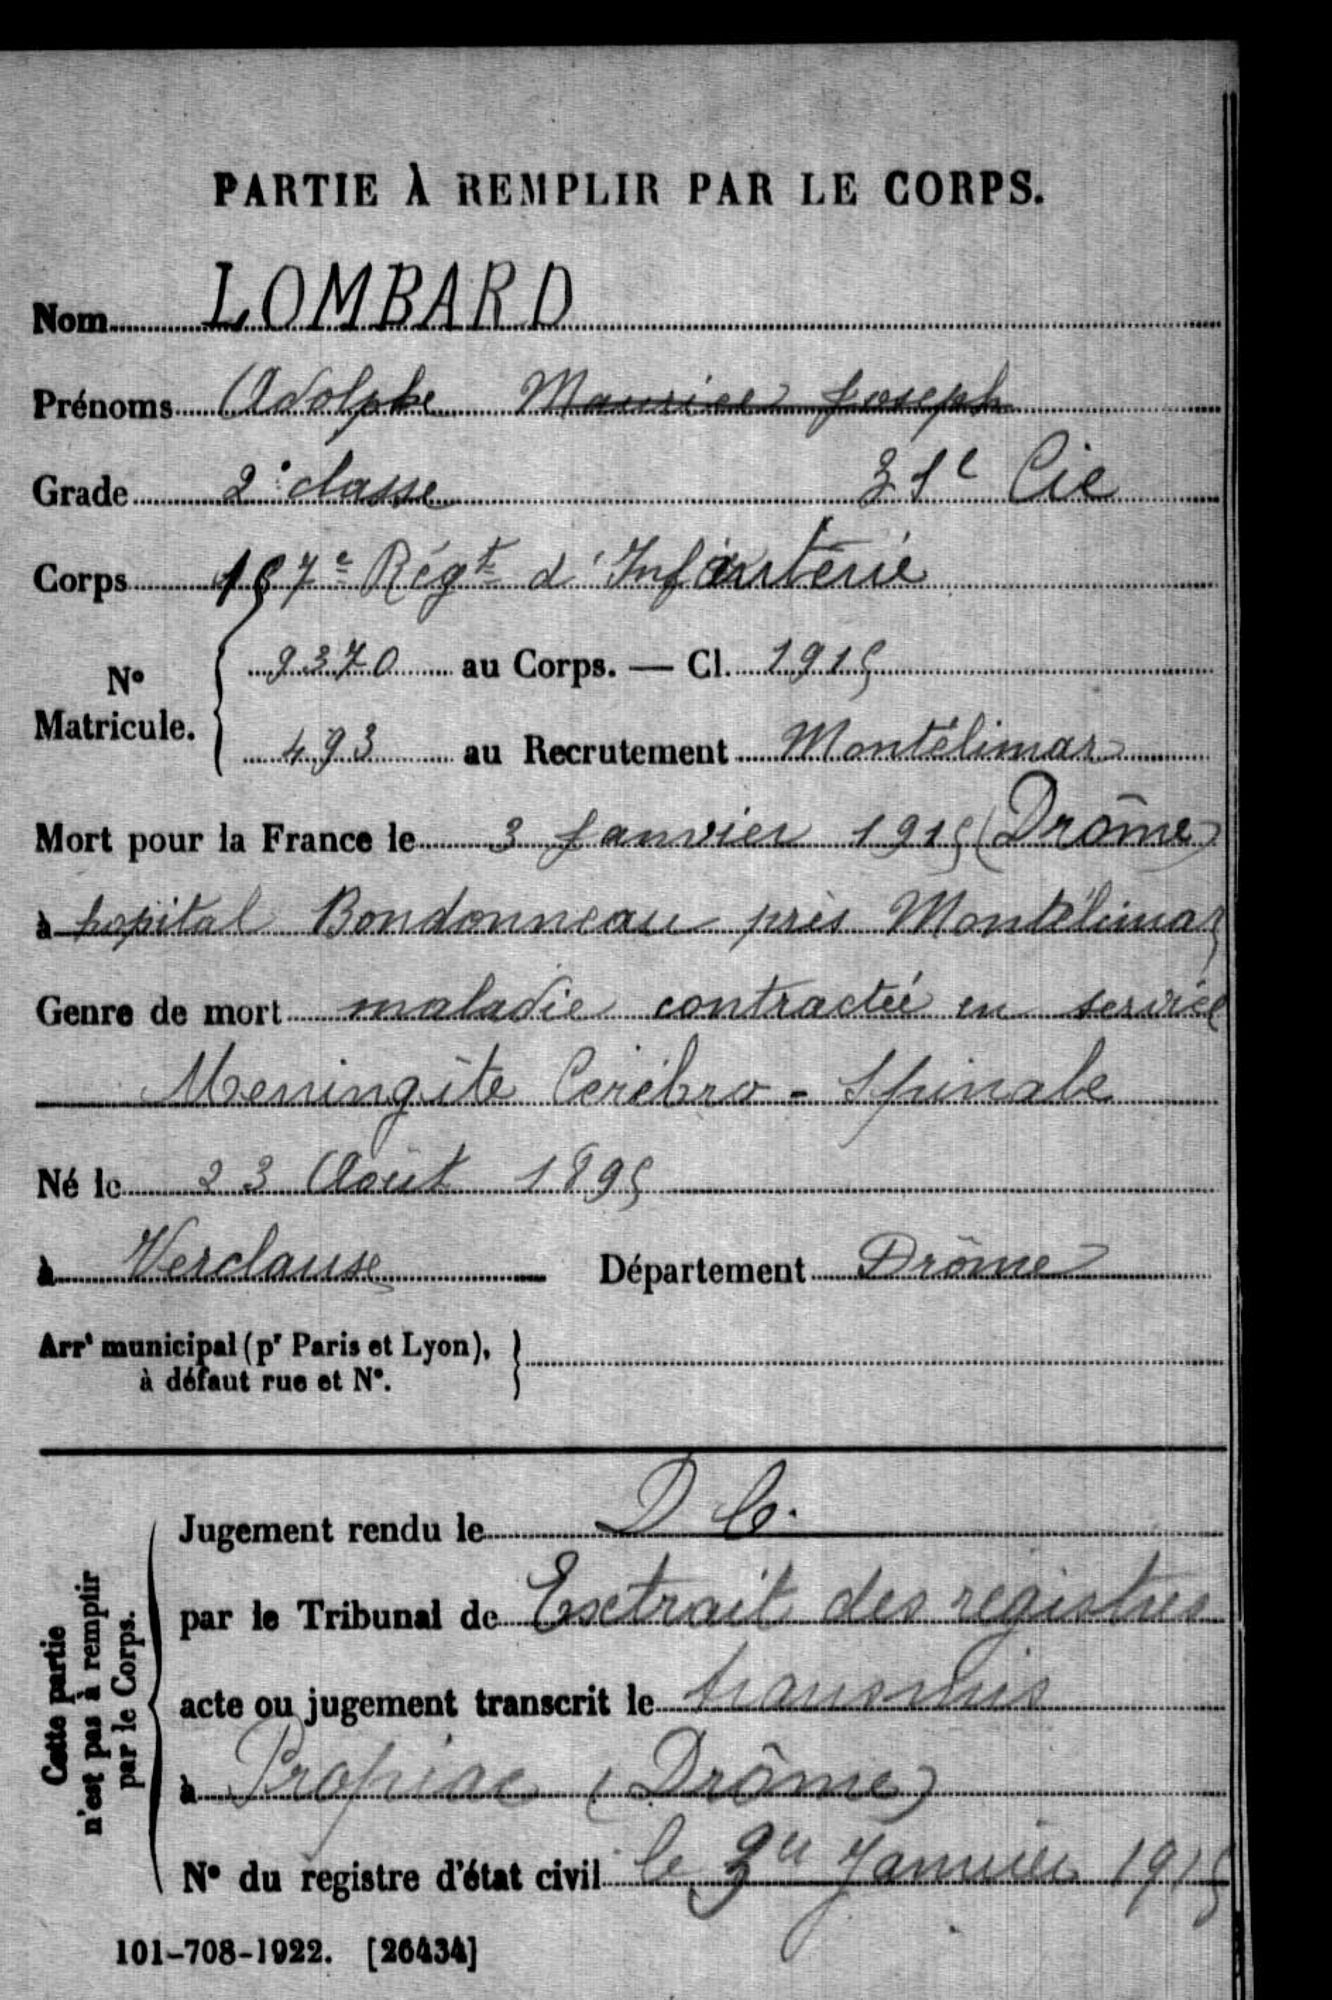 PARTIE À REMPLIR PAR LE CORPS.
Nom LOMBARD
Prénoms Adolphe Maurice Joseph
Grade 2e classe 31e Cie
Corps 157e Régt d'Infanterie
No Matricule.
9370 au Corps. — Cl. 1915
493 au Recrutement Montélimar
Mort pour la France le 3 Janvier 1915 (Drôme)
à hopital Bondonneau près Montélimar
Genre de mort maladie contractée en service
Meningite Cérébro-Spinale
Né le 23 Août 1895
à Verclause Département Drôme
Arrt municipal (pr Paris et Lyon), à défaut rue et No.
Cette partie n'est pas à remplir par le Corps.
Jugement rendu le D C.
par le Tribunal de Extrait des registres
acte ou jugement transcrit le transmis
à Propiac (Drôme)
No du registre d'état civil le Janvier 1915
101-708-1922. [26434]